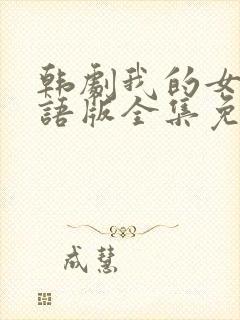 韩劇我的女
語版全集免
成慧